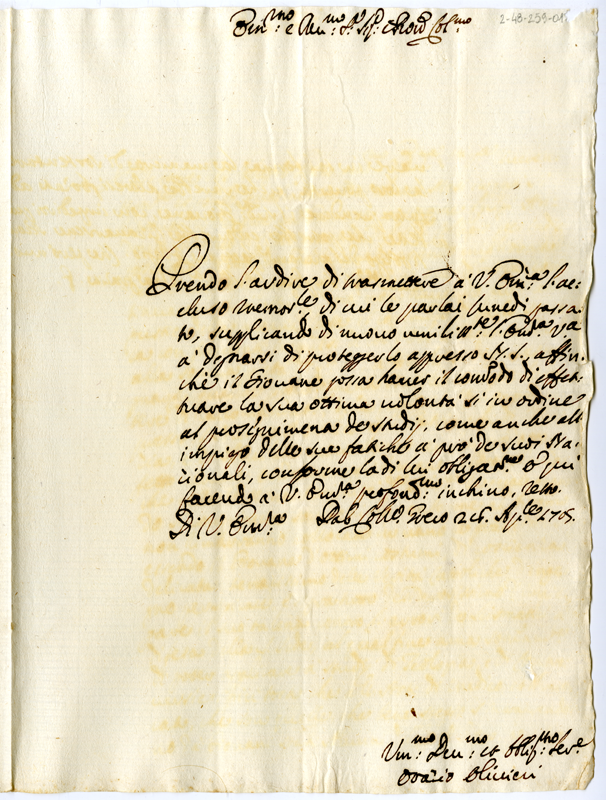 2-48-259-01
Em:mo e Rev:mo S.r Sig: e Pron Col:mo
Prendo l'ardire di trasmettere à V. Em:a l'ac-
cluso memor.le di cui le parlai lunedi passa-
to, supplicando di nuovo umiliss.te l'Em.a V.a
a degnarsi di proteggerlo appresso N. S., affin-
chè il Giovane possa haver il comodo di effet-
tuare la sua ottima volontà si in ordine
al proseguimento de studij, come anche all
impiego delle sue fatiche à prò de suoi Na-
cionali, conforme la di lui obligaz.ne e qui
facendo à V. Em.a profond.mo inchino, resto.
Di V. Em.a Dal Coll.o Greco 26. Ap.le 1705.
Um:mo Dev:mo et Oblig:mo Ser.e
Orazio Olivieri